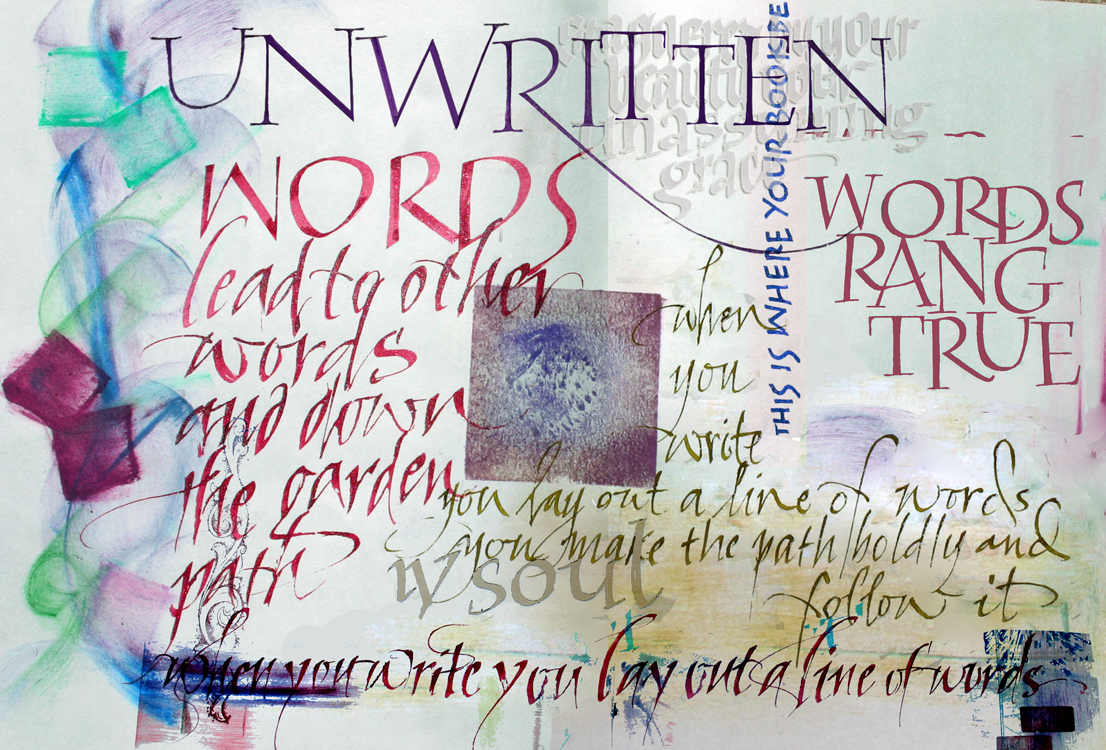 UNWRITTEN
WORDS
lead to other
words
and down
the garden
path
your
grace
THIS IS WHERE YOUR BOOK BE
WORDS
RANG
TRUE
when
you
write
you lay out a line of words
you make the path boldly and
follow it
soul
when you write you lay out a line of words